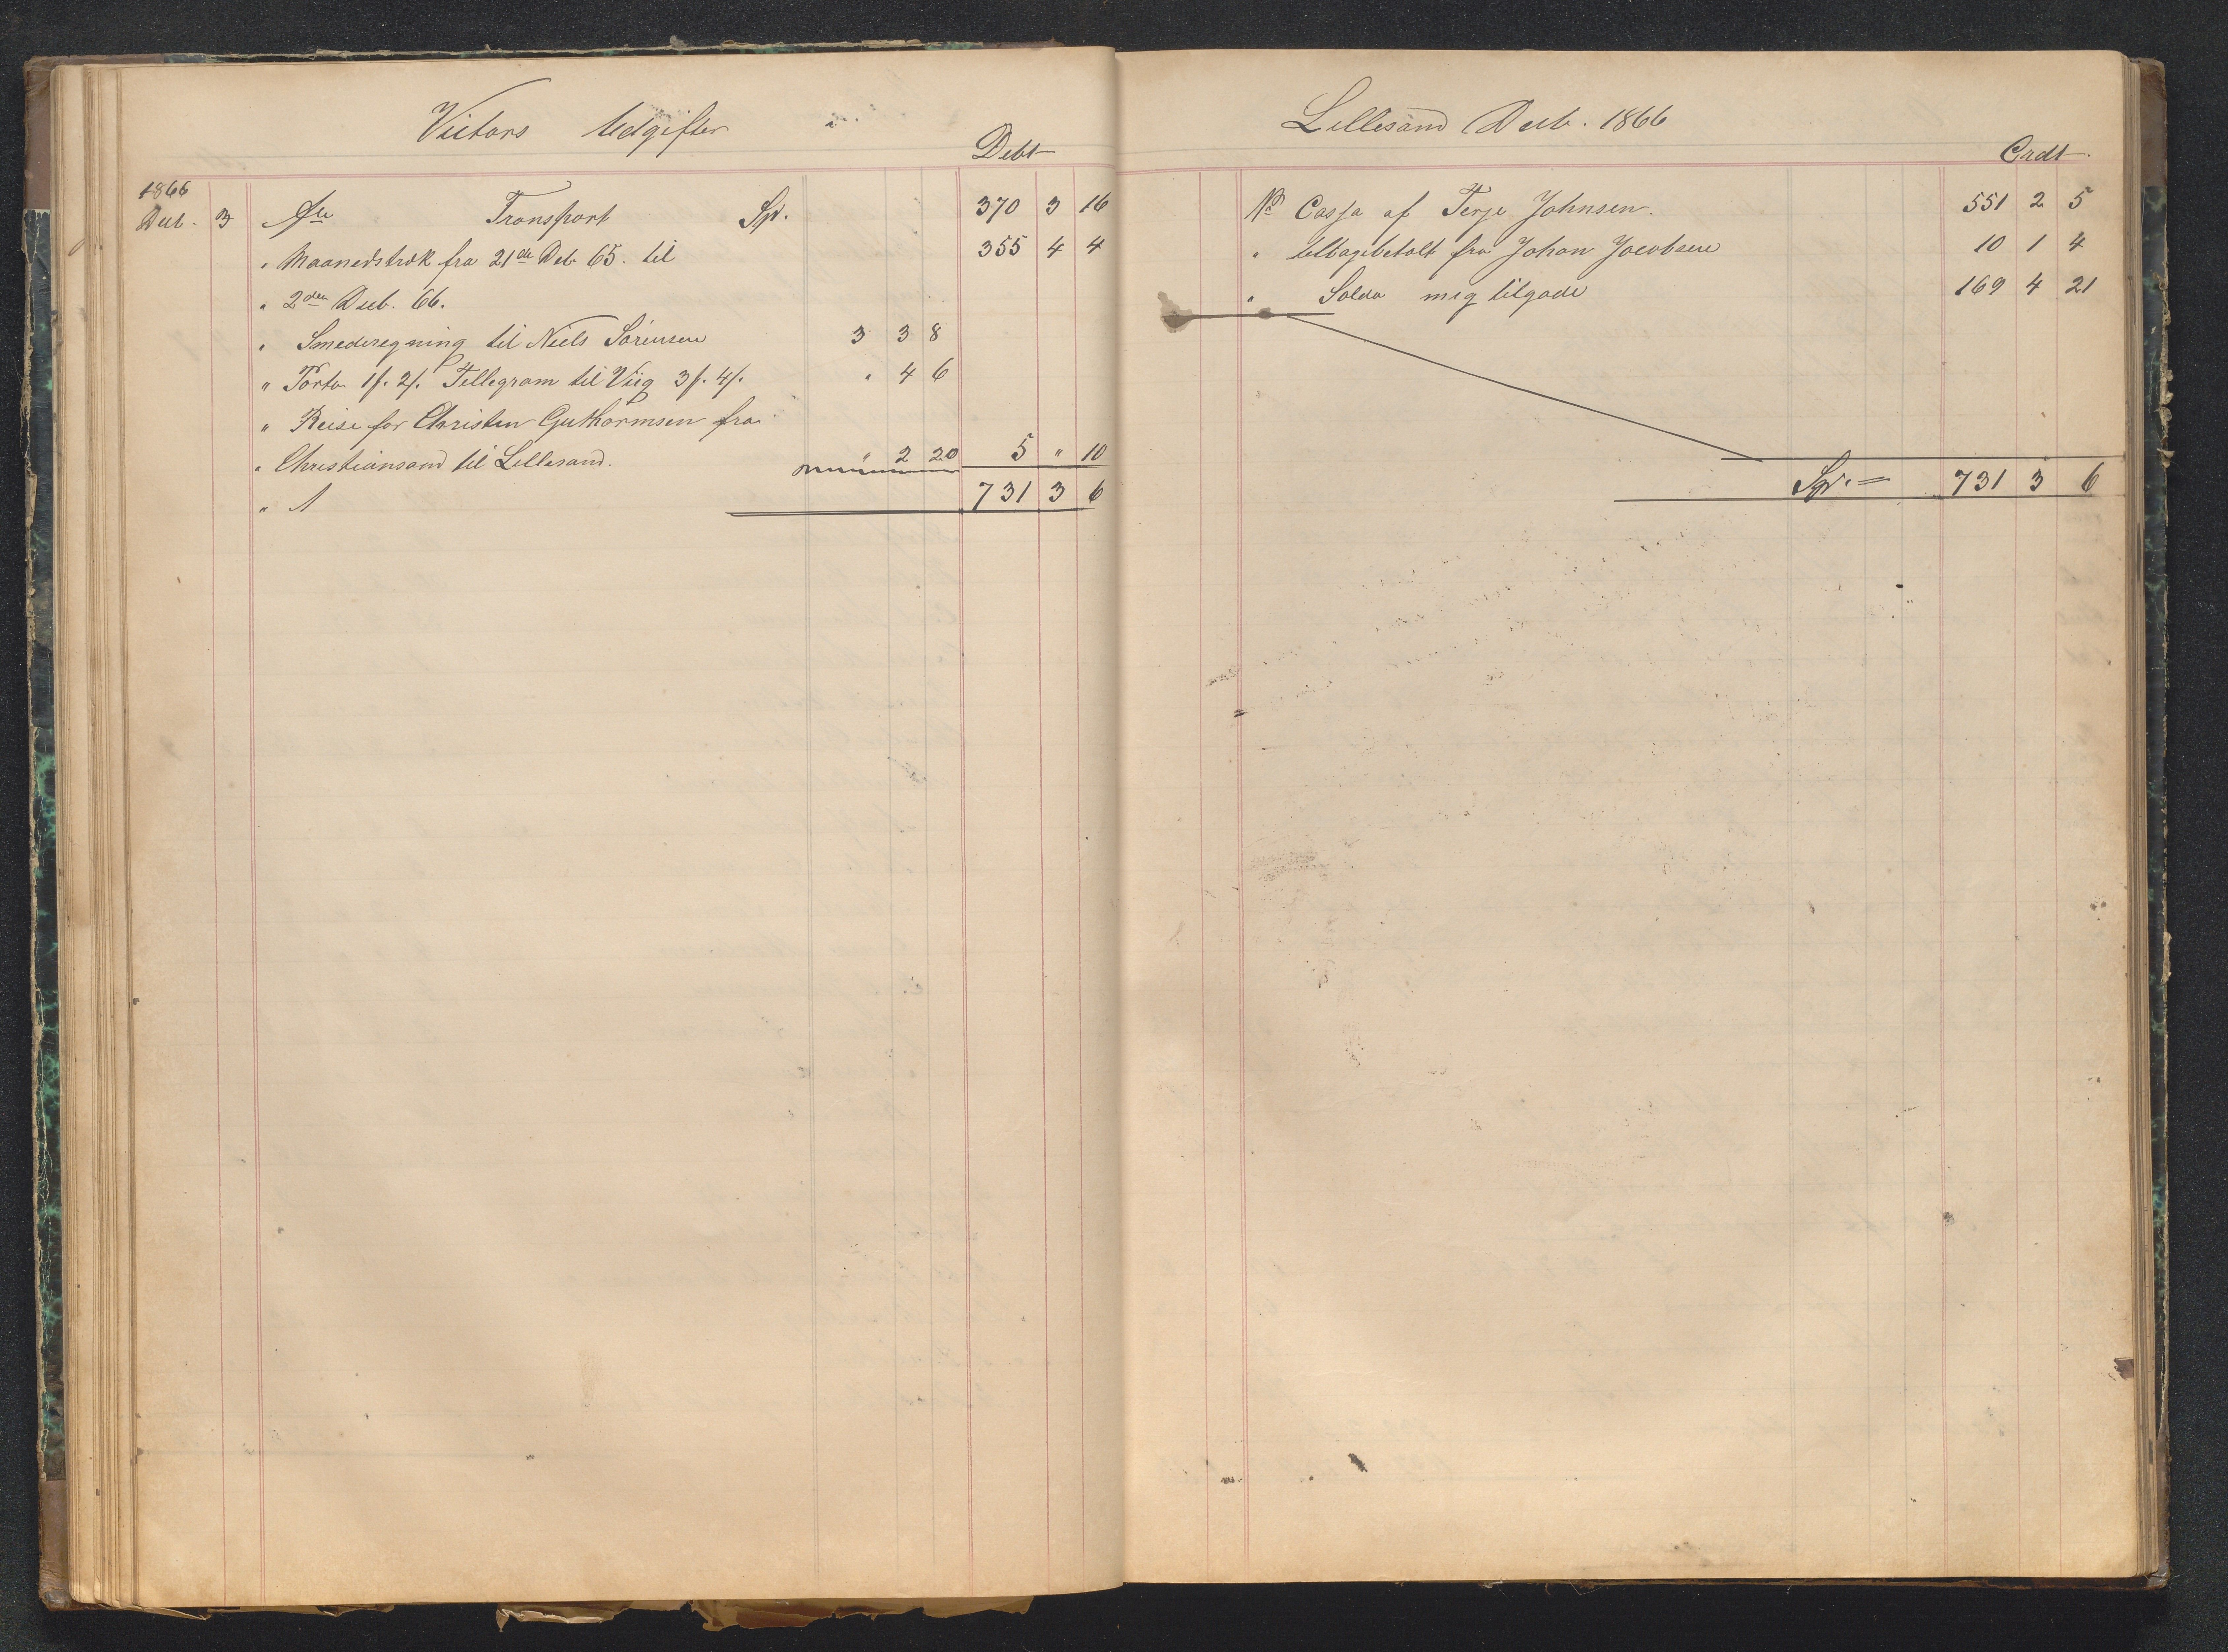 Victors Udgifter
Debt
1866
Decb. 3 Transport Spd. 370 3 16
" Maanedstræk fra 21de Deb 65. til 355 4 4
" 2den Decb. 66.
" Smederegning til Niels Sörensen 3 3 8
" Porto 1/. 2/. Tellegram til Viig 3/. 4/. " 4 6
" Reise for Christen Guthormsen fra
" Christiansand til Lillesand. " 2 20 5 " 10
" 731 3 6
Lillesand Decb. 1866
Crdt.
Cassa af Terje Johnsen. 551 2 5
" tilbagebetalt fra Johan Jacobsen 10 1 4
" Saldo mig tilgode 169 4 21
Spd. = 731 3 6